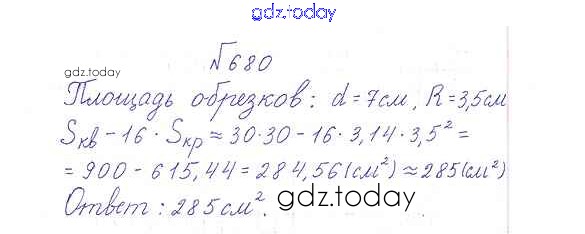 gdz.today
№680
gdz.today
Площадь обрезков: d = 7см, R = 3,5см
Sкв – 16 · Sкр ≈ 30·30 – 16·3,14·3,5² =
= 900 – 615,44 = 284,56(см²) ≈ 285(см²)
Ответ: 285см².
gdz.today